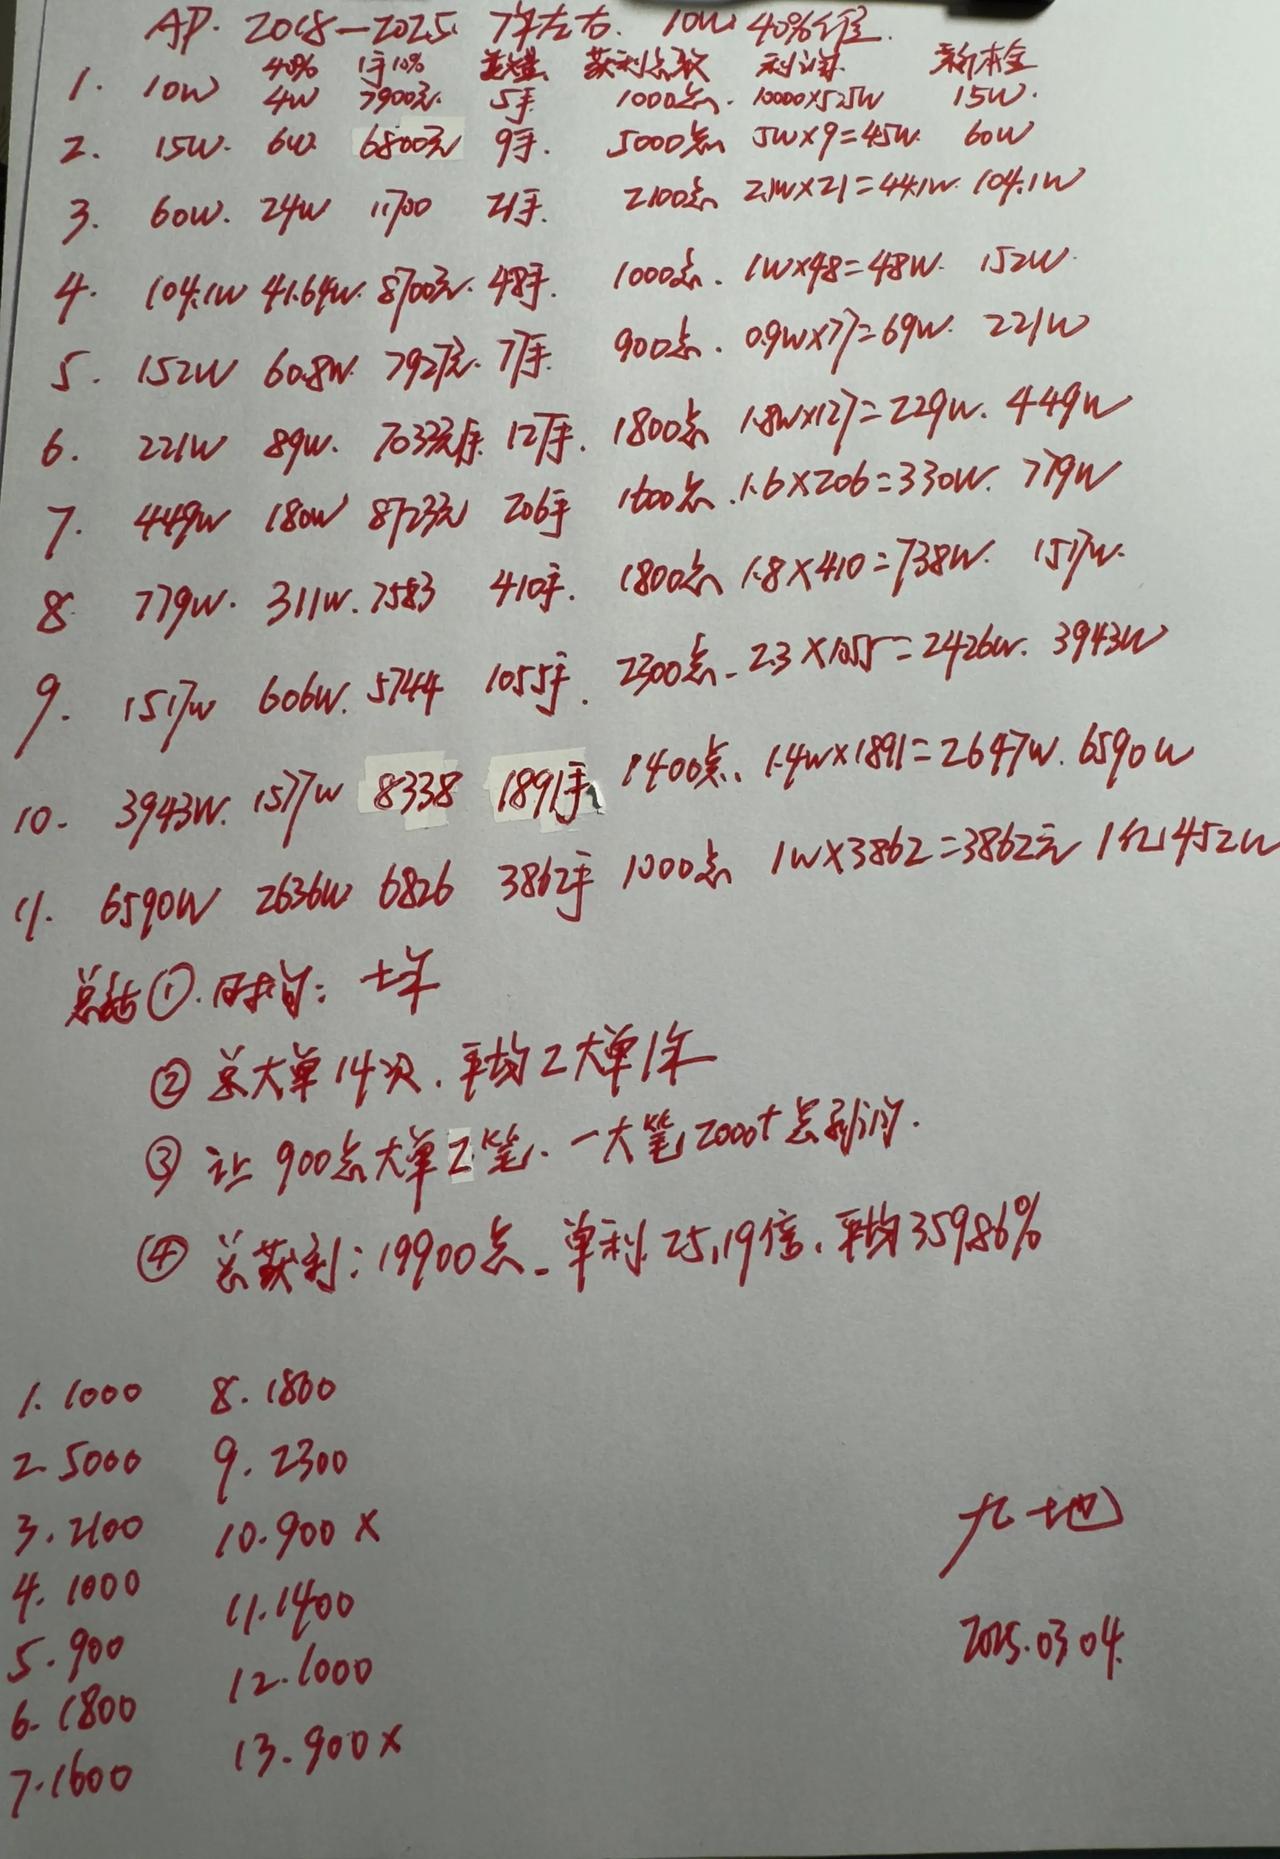 AP. 2018—2025. 7年左右. 10W. 40%仓位.
40% 1手10% 数量 获利点数 利润 新本金
1. 10W 4W 7900元. 5手 1000点. 10000×5=5W 15W.
2. 15W. 6W. 6800元 9手. 5000点 5W×9=45W. 60W
3. 60W. 24W 11700 21手. 2100点 2.1W×21=44.1W. 104.1W
4. 104.1W 41.64W. 8700元. 48手. 1000点. 1W×48=48W. 152W.
5. 152W 60.8W. 7927元. 77手. 900点. 0.9W×77=69W. 221W
6. 221W 89W. 7033元/手. 127手. 1800点 1.8W×127=229W. 449W
7. 449W 180W 8723元 206手 1600点. 1.6×206=330W. 779W
8 779W. 311W. 7583 410手. 1800点 1.8×410=738W. 1517W.
9. 1517W 606W. 5744 1055手. 2300点. 2.3×1055=2426W. 3943W
10. 3943W. 1577W 8338 1891手 1400点. 1.4W×1891=2647W. 6590W
11. 6590W 2636W 6826 3862手 1000点 1W×3862=3862元 1亿452W
总结①. 时间: 七年
② 总大单14次. 平均2大单1年
③ 让900点大单2笔. 一大笔2000+点利润.
④ 总获利: 19900点. 单利 25.19倍. 平均359.86%
1. 1000 8. 1800
2. 5000 9. 2300
3. 2100 10. 900 ×
4. 1000 11. 1400
5. 900 12. 1000
6. 1800 13. 900 ×
7. 1600
九地
2025.03.04.